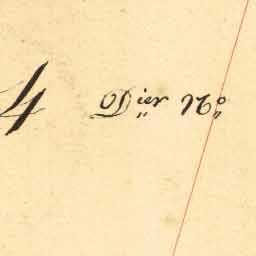 4 D„ier N„o